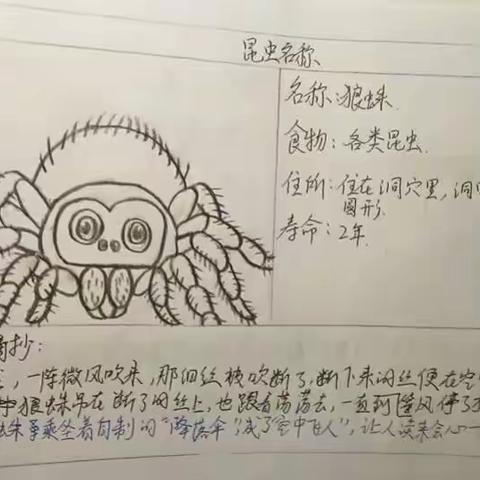 昆虫名称
名称:狼蛛.
食物:各类昆虫.
住所:住在洞穴里,洞
圆形.
寿命:2年.
摘抄:
,一阵微风吹来,那细丝被吹断了,断下来的丝便在空
狼蛛吊在断了的丝上,也跟着荡荡去,一直到 风停了
蛛 乘坐着自制的“降落伞”成了空中飞人”,让人读来会心一